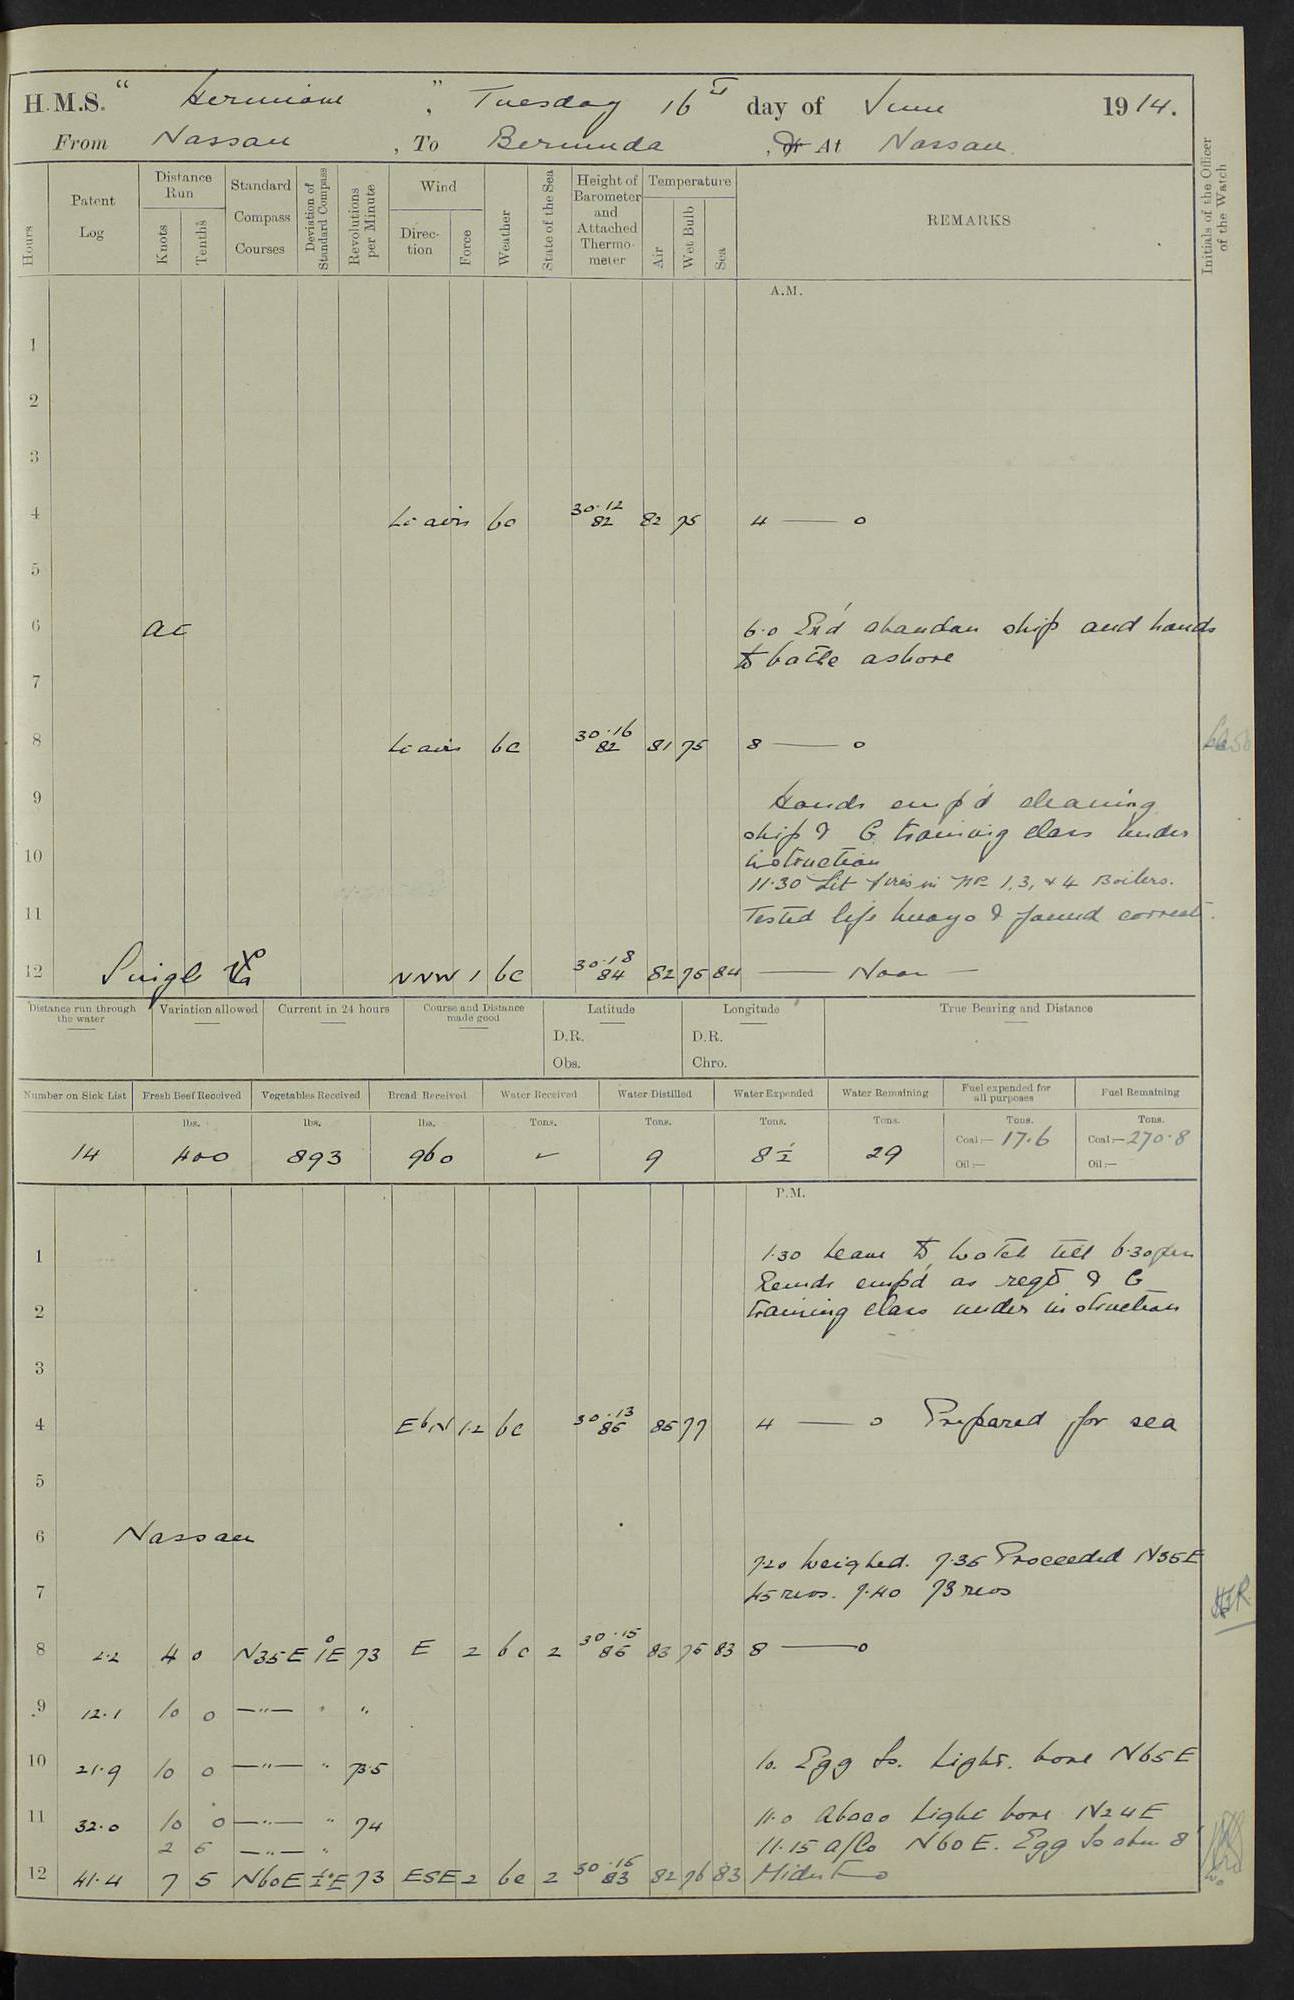 H.M.S. "Hermione", Tuesday 16th day of June 1914.
From Nassau, To Bermuda, Or At Nassau.
Hours
Patent Log
Distance Run
Knots
Tenths
Standard Compass Courses
Deviation of Standard Compass
Revolutions per Minute
Wind
Direction
Force
Weather
State of the Sea
Height of Barometer and Attached Thermometer
Temperature
Air
Wet Bulb
Sea
REMARKS
Initials of the Officer of the Watch
A.M.
1
2
3
4 Lt airs bc 30.12 82 82 75 4 — o
5
6 at 6.0 Ex'd abandon ship and hands
to bathe ashore
7
8 Lt airs bc 30.16 82 81 75 8 — o
9 Hands emp'd cleaning
ship & G training class under
10 instruction
11.30 Lit fires in Nos 1, 3, & 4 Boilers.
11 Tested life buoys & found correct.
12 Single NNW 1 bc 30.18 84 82 75 84 — Noon —
Distance run through the water
Variation allowed
Current in 24 hours
Course and Distance made good
Latitude
D.R.
Obs.
Longitude
D.R.
Chro.
True Bearing and Distance
Number on Sick List Fresh Beef Received Vegetables Received Bread Received Water Received Water Distilled Water Expended Water Remaining Fuel expended for all purposes Fuel Remaining
lbs. lbs. lbs. Tons. Tons. Tons. Tons. Tons. Tons.
14 400 893 960 – 9 8½ 29 Coal:— 17.6 Coal:— 270.8
Oil:— Oil:—
P.M.
1 1.30 Leave to watch till 6.30 pm
Hands emp'd as reqd & G
2 training class under instruction
3
4 EbN 1.2 bc 30.13 86 86 77 4 — o Prepared for sea
5
6 Nassau
7.20 Weighed. 7.35 Proceeded N35E
7 45 revs. 7.40 73 revs
8 2.2 4 0 N35E 1°E 73 E 2 bc 2 30.15 86 83 76 83 8 — o
9 12.1 10 0 —"— " "
10 21.9 10 0 —"— " 73.5 10. Egg Is. Light. bore N65E
11 32.0 10 0 —"— " 74 11.0 Abaco Light bore N24E
2 5 —"— " 11.15 A/Co N60E. Egg Is abm 8'
12 41.4 7 5 N60E ½°E 73 ESE 2 bc 2 30.15 83 82 76 83 Midnt — o